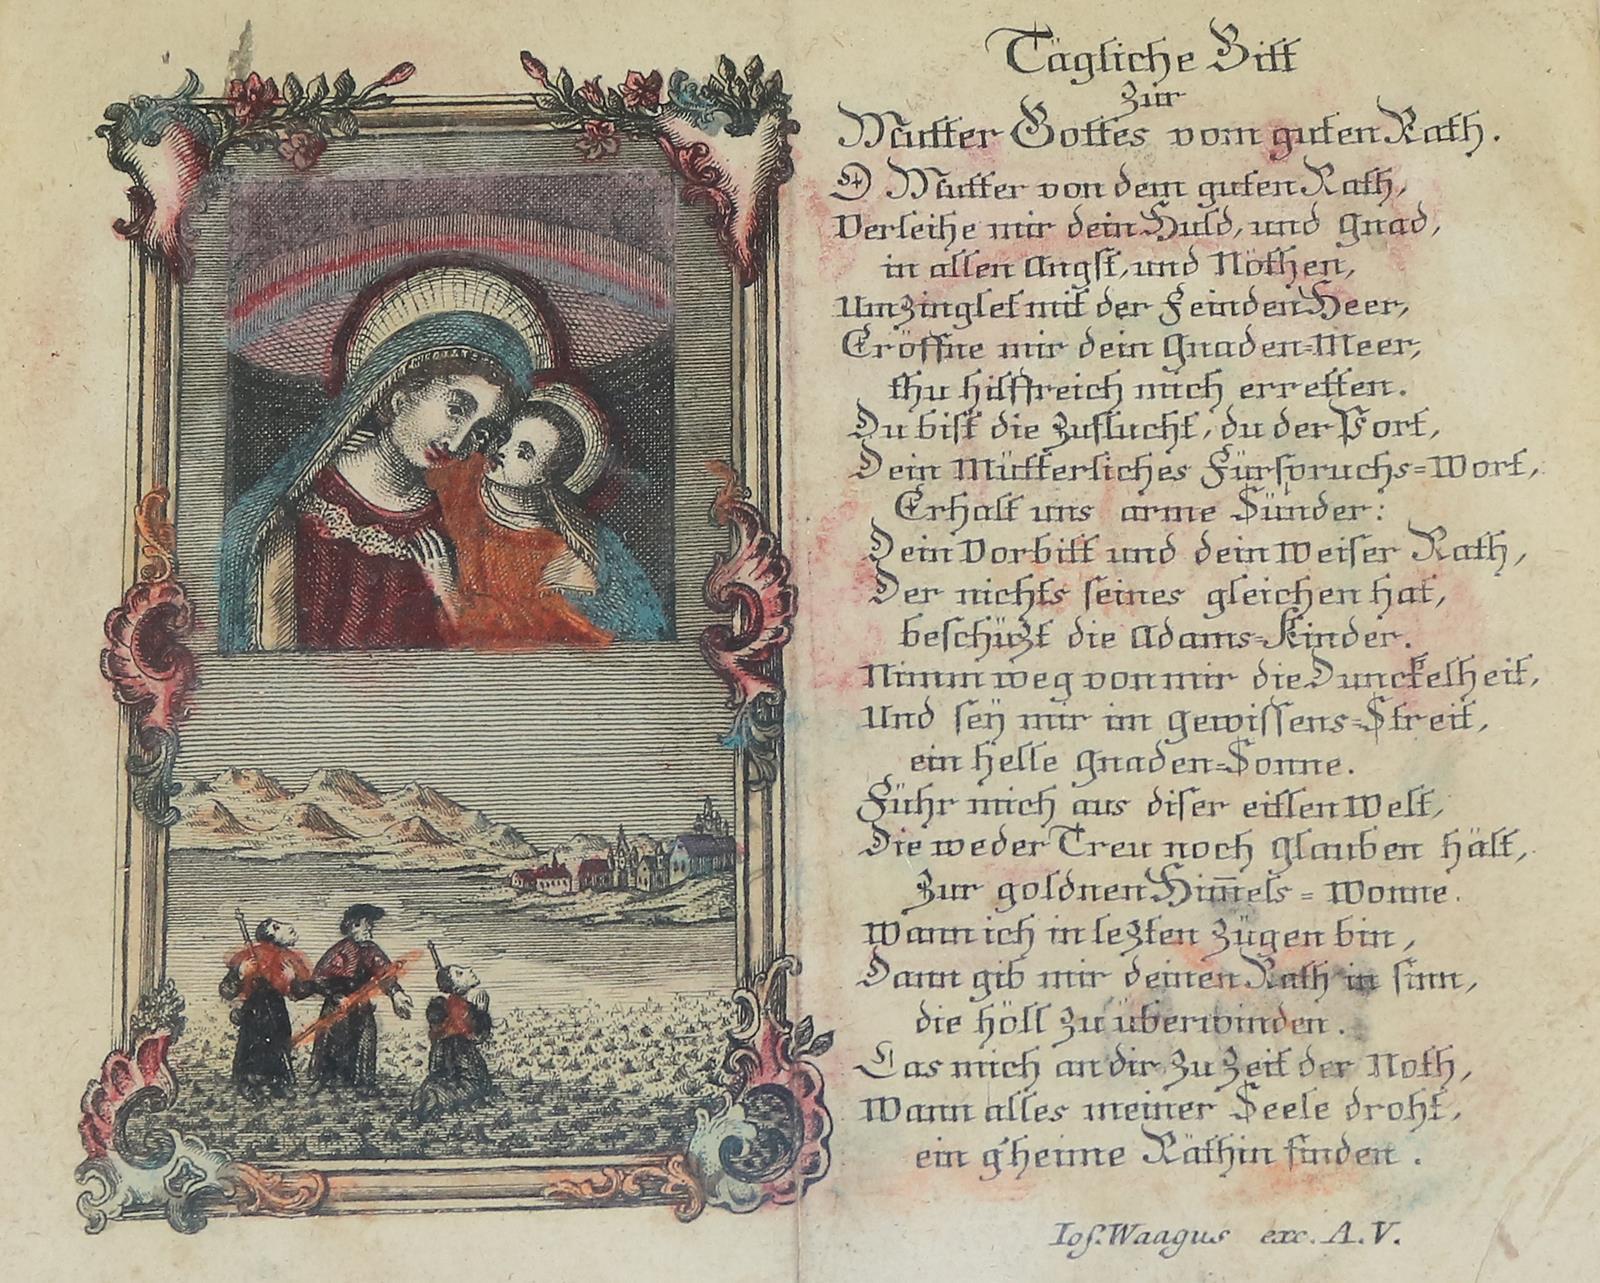 Tägliche Bitt
zur
Mutter Gottes vom guten Rath.
O Mutter von dem guten Rath,
Verleihe mir dein Huld, und Gnad,
in allen Angst, und Nöthen,
Umzinglet mit der Feinden Heer,
Eröffne mir dein Gnaden=Meer,
thu hilffreich mich erretten.
Du bist die Zuflucht, du der Port,
Dein Mütterliches Fürspruchs=Wort,
Erhalt uns arme Sünder:
Dein Vorbitt und dein weiser Rath,
Der nichts seines gleichen hat,
beschüzt die Adams=Kinder.
Nimm weg von mir die Dunckelheit,
Und seÿ mir im Gewissens=Streit,
ein helle Gnaden=Sonne.
Führ mich aus diser eitlen Welt,
Die weder Treu noch Glauben hält,
Zur goldnen Him̄els=Wonne.
Wann ich in lezten Zügen bin,
Dann gib mir deinen Rath in sinn,
die höll zu überwinden.
Las mich an dir zu Zeit der Noth,
Wann alles meiner Seele droht,
ein g'heime Räthin finden.
Ios. Waagus exc. A. V.